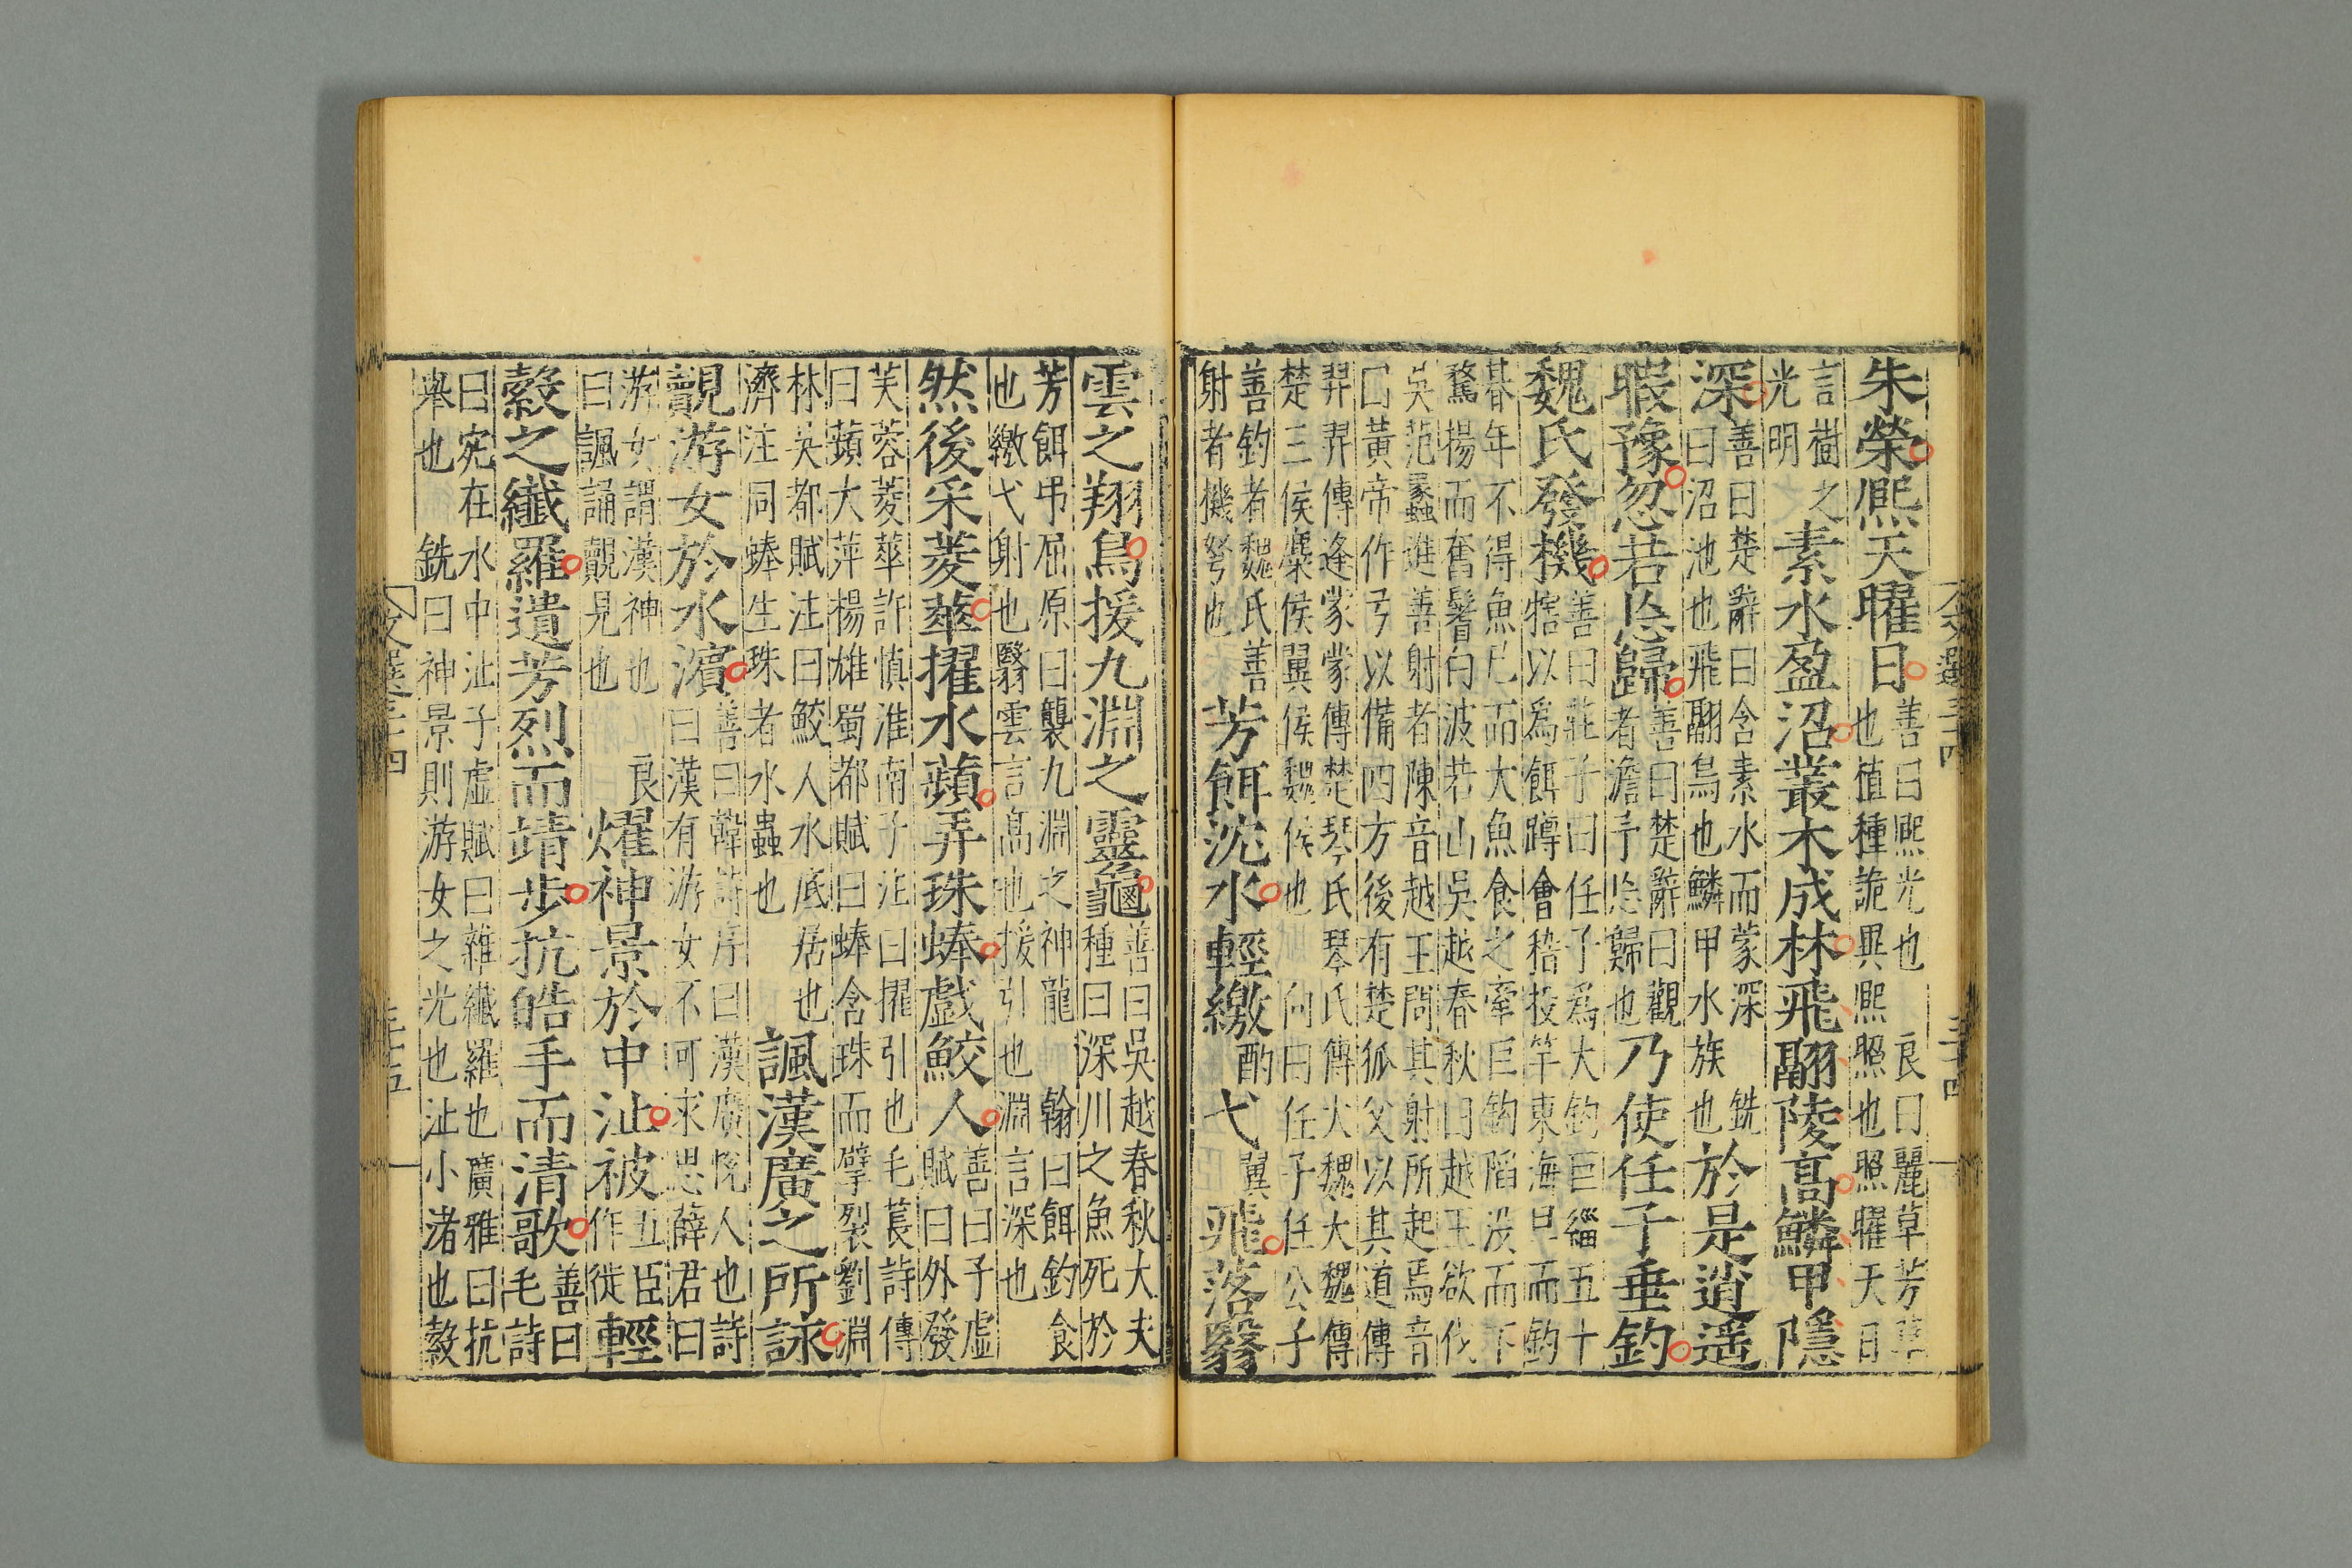 朱榮熈天曜日善曰熈光也 良曰麗草芳草
也植種詭異熈照也照曜天日
言樹之
光明素水盈沼叢木成林飛翮陵高鱗甲隱
深善曰楚辭曰含素水而蒙深 銑
曰沼池也飛翮鳥也鱗甲水族也於是逍遥
暇豫忽若忘歸善曰楚辭曰觀
者澹予忘歸也乃使任子垂釣
魏氏發機善曰莊子曰任子爲大釣巨緇五十
犗以爲餌蹲會稽投竿東海旦而釣
朞年不得魚已而大魚食之牽巨鈎陷没而下
騖揚而奮鬐白波若山吳越春秋曰越王欲伐
吳范蠡進善射者陳音越王問其射所起焉音
曰黃帝作弓以備四方後有楚狐父以其道傳
羿羿傳逢蒙蒙傳楚琴氏琴氏傳大魏大魏傳
楚三侯麋侯翼侯魏侯也 向曰任子任公子
善釣者魏氏善
射者機弩也芳餌沈水輕繳酌弋翼飛落翳
雲之翔鳥援九淵之靈龜善曰吳越春秋大夫
種曰深川之魚死於
芳餌弔屈原曰襲九淵之神龍 翰曰餌釣食
也繳弋射也翳雲言高也援引也淵言深也
然後采菱華擢水蘋弄珠蜯戲鮫人善曰子虛
賦曰外發
芙蓉菱華許慎淮南子注曰擢引也毛萇詩傳
曰蘋大萍楊雄蜀都賦曰蜯含珠而擘裂劉淵
林吳都賦注曰鮫人水底居也
濟注同蜯生珠者水蟲也諷漢廣之所詠
覿游女於水濱善曰韓詩序曰漢廣恱人也詩
曰漢有游女不可求思薛君曰
游女謂漢神也 良
曰諷誦覿見也燿神景於中沚被五臣
作徙輕
縠之纖羅遺芳烈而靖步抗皓手而清歌善曰
毛詩
曰宛在水中沚子虛賦曰雜纖羅也廣雅曰抗
舉也 銑曰神景則游女之光也沚小渚也縠
文選三十四
三十四
文選三十四
三十五